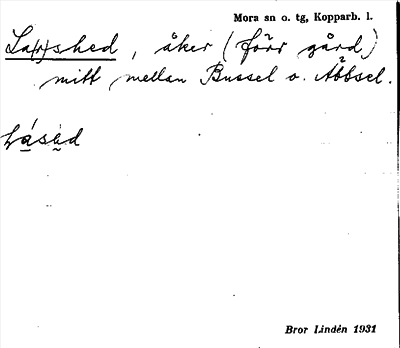 Mora sn o. tg, Kopparb. l.
La(r)shed, åker (förr gård)
mitt mellan Bussel o. Åbbsel.
Lásèd
Bror Lindén 1931